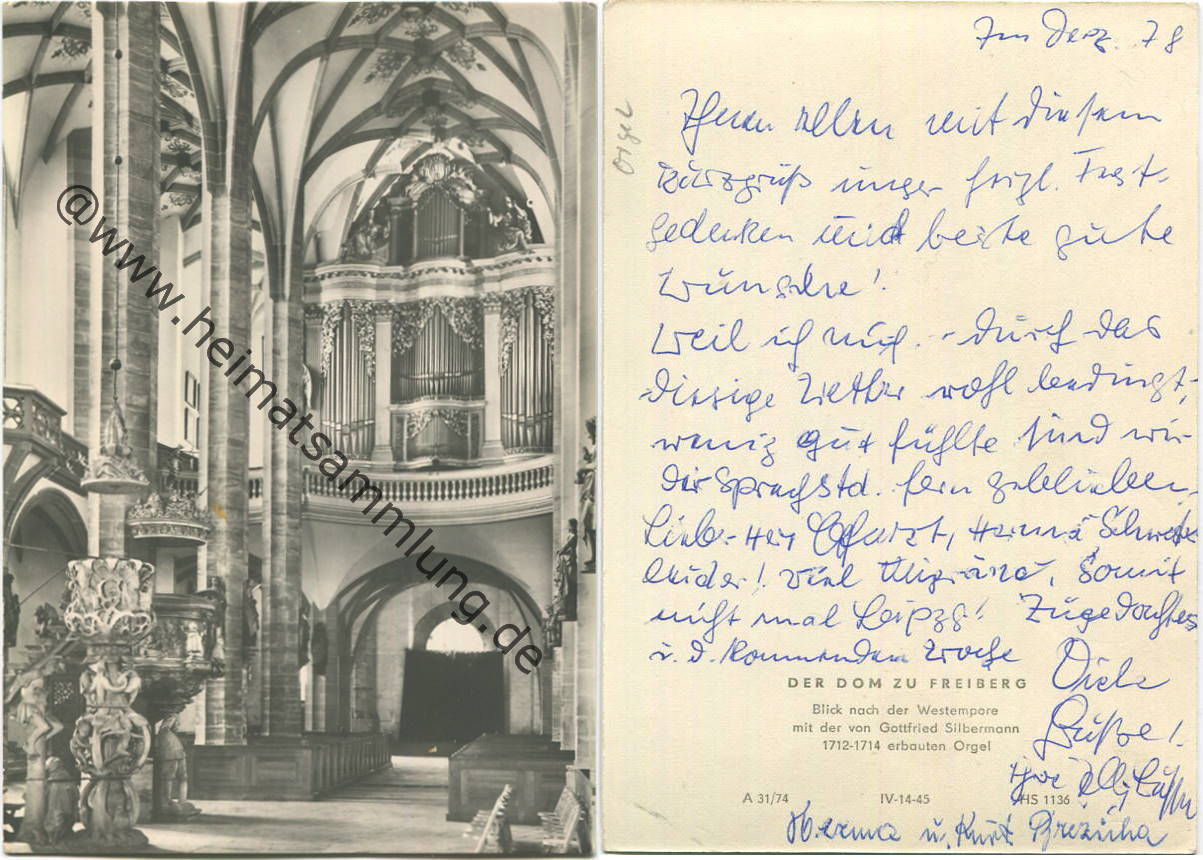 @www.heimatsammlung.de
Orgel
Im Dez. 78
Ihnen allen mit diesem
Kurzgruß unser herzl. Fest-
gedenken und beste gute
Wünsche!
Weil ich mich - durch das
diesige Wetter wohl bedingt,
wenig gut fühlte sind wir
der Sprechstd. fern geblieben.
Lieber Herr
leider! Viel Migräne, somit
nicht mal Leipzg! Zugedachtes
i. d. kommenden Woche
Viele
Grüße!
Ihre
Herma u. Kurt
DER DOM ZU FREIBERG
Blick nach der Westempore
mit der von Gottfried Silbermann
1712-1714 erbauten Orgel
A 31/74 IV-14-45 HS 1136